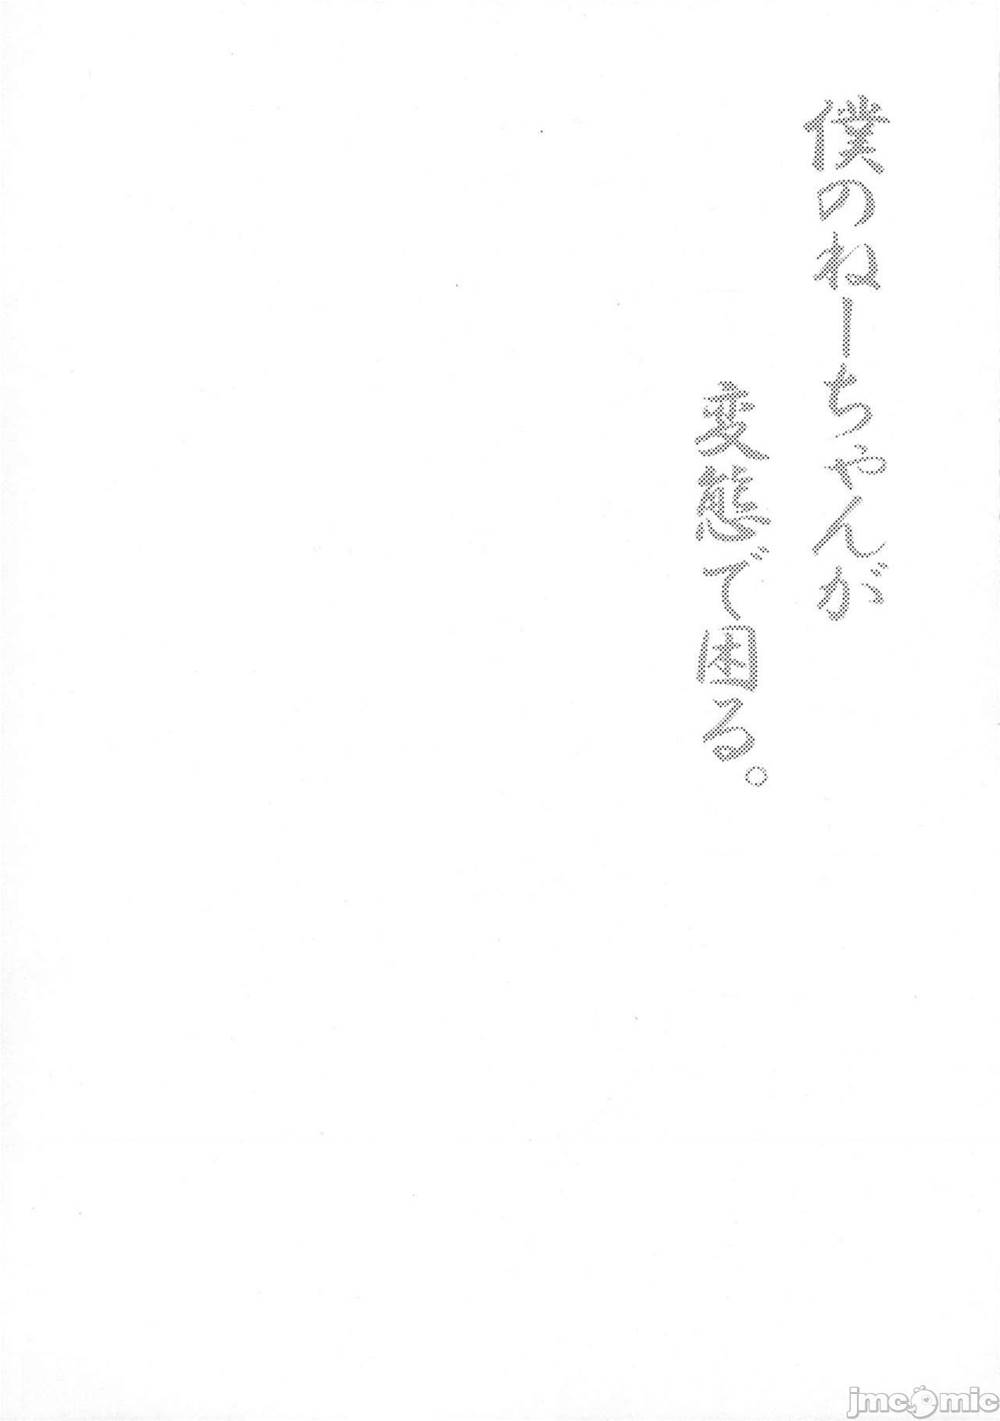 僕のねーちゃんが
変態で困る。
jmcomic